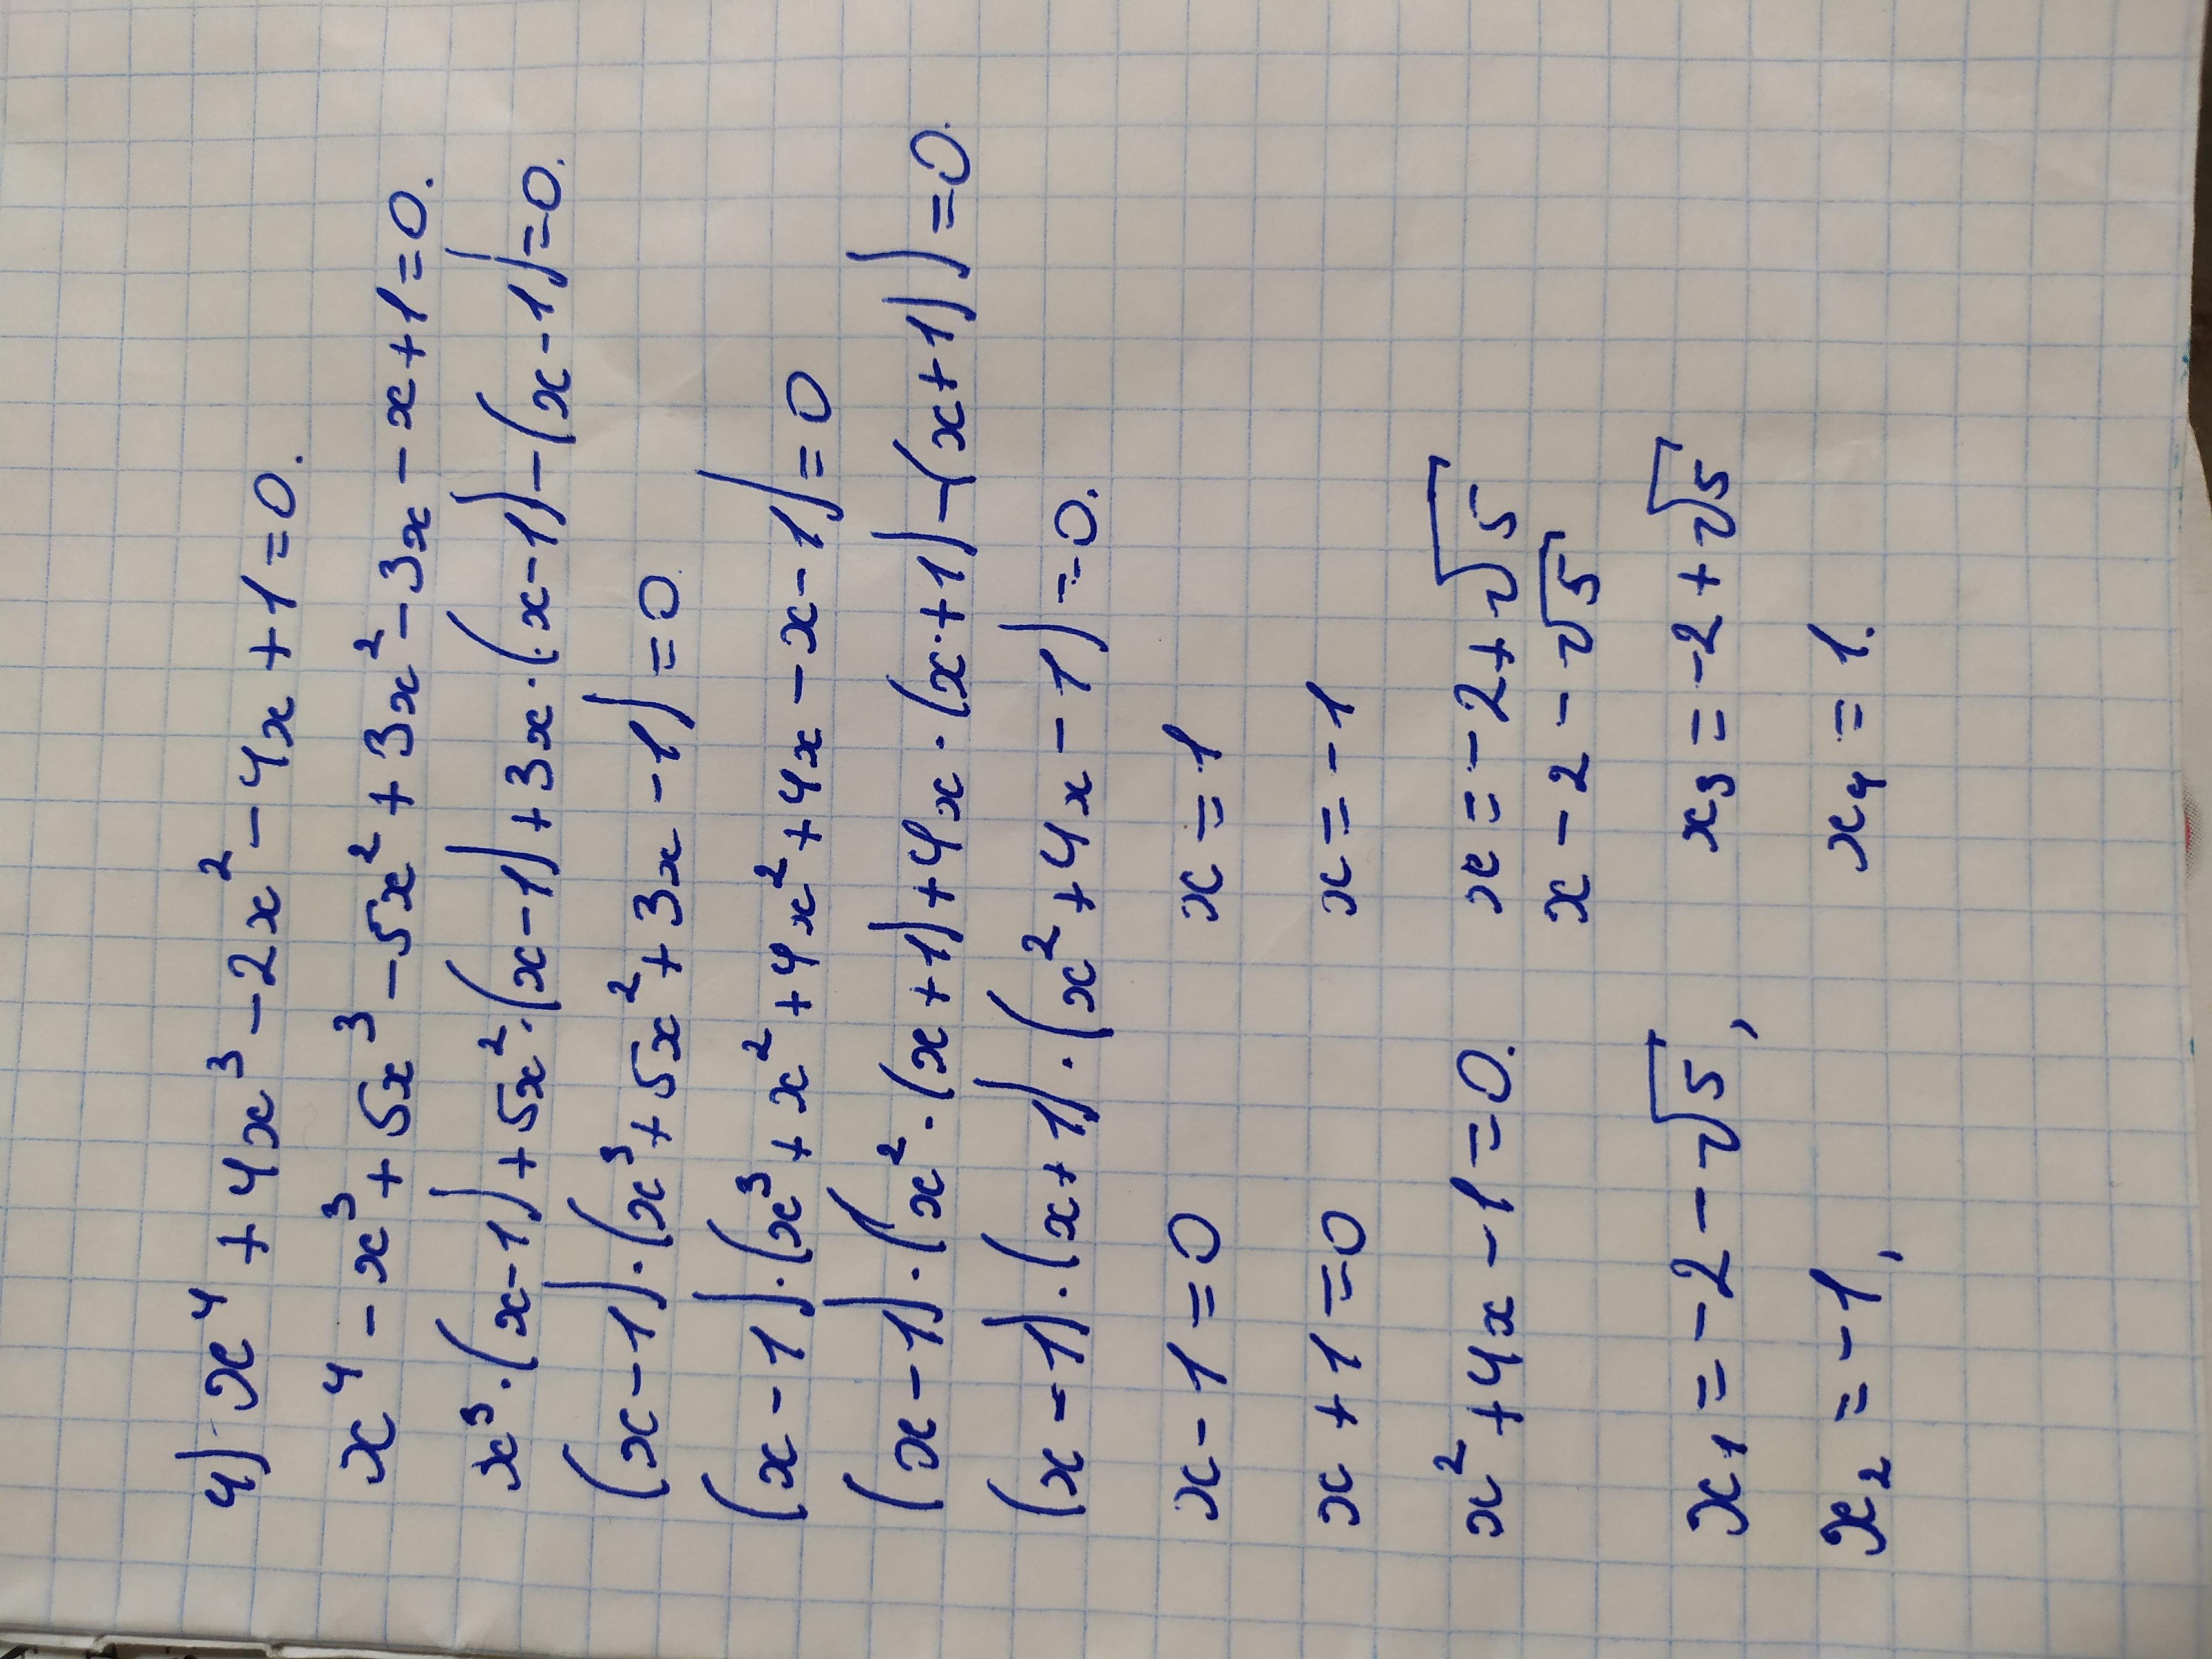 4) x⁴ + 4x³ - 2x² - 4x + 1 = 0.
x⁴ - x³ + 5x³ - 5x² + 3x² - 3x - x + 1 = 0.
x³·(x-1) + 5x²·(x-1) + 3x·(x-1) - (x-1) = 0.
(x-1)·(x³ + 5x² + 3x - 1) = 0
(x-1)·(x³ + x² + 4x² + 4x - x - 1) = 0
(x-1)·(x²·(x+1) + 4x·(x+1) - (x+1)) = 0.
(x-1)·(x+1)·(x² + 4x - 1) = 0.
x - 1 = 0 x = 1
x + 1 = 0 x = -1
x² + 4x - 1 = 0. x = -2 + √5
x - 2 - √5
x₁ = -2 - √5, x₃ = -2 + √5
x₂ = -1, x₄ = 1.